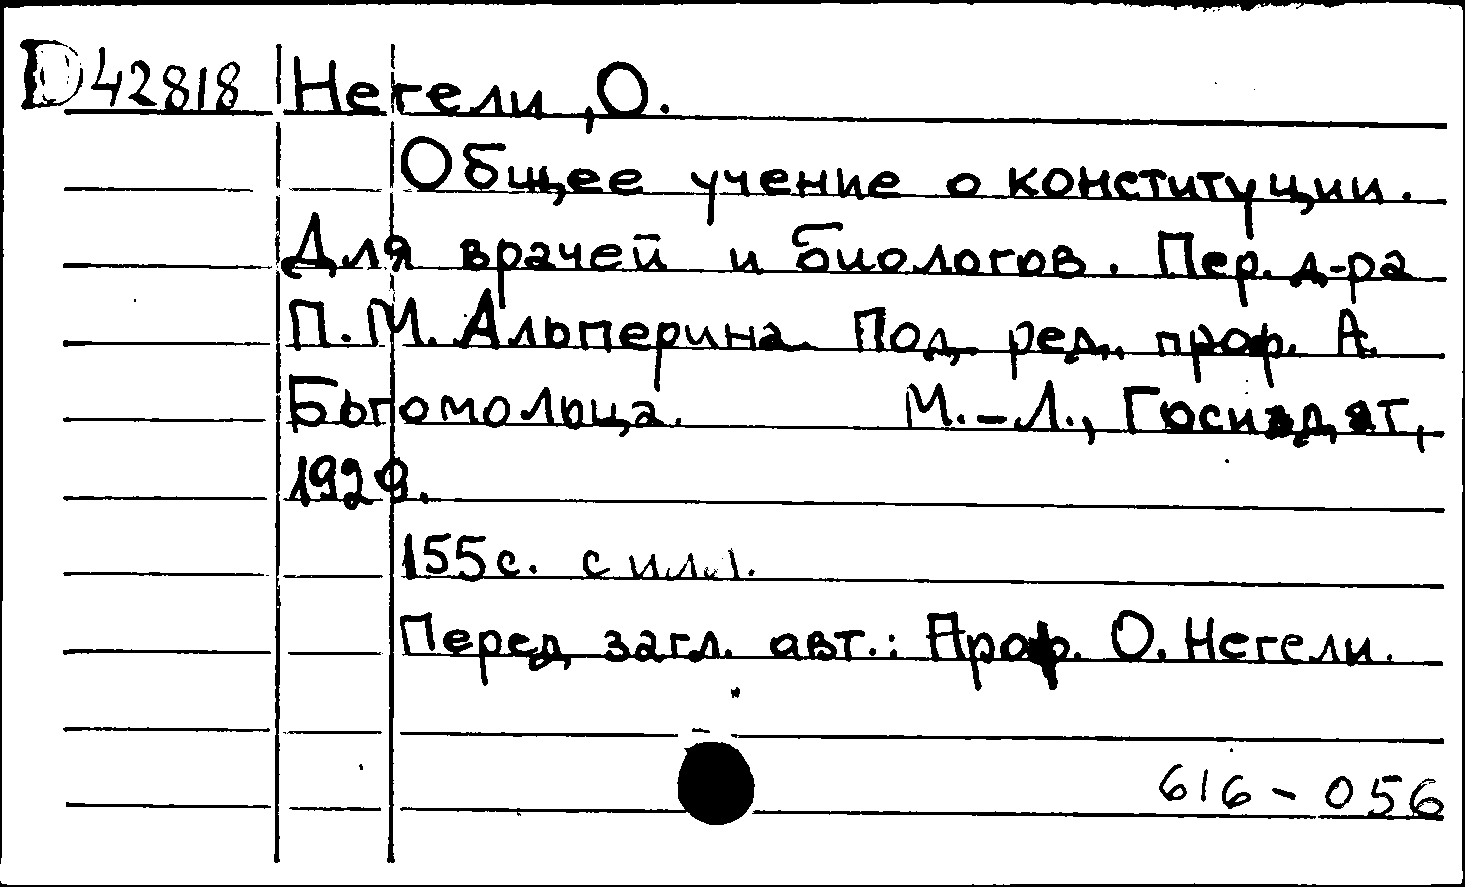 D 42818 Негели, О.
Общее учение о конституции.
Для врачей и биологов. Пер. д-ра
П. М. Альперина. Под ред. проф. А.
Богомольца. М.-Л., Госиздат,
1929.
155с. с илл.
Перед загл. авт.: Проф. О. Негели.
616-056